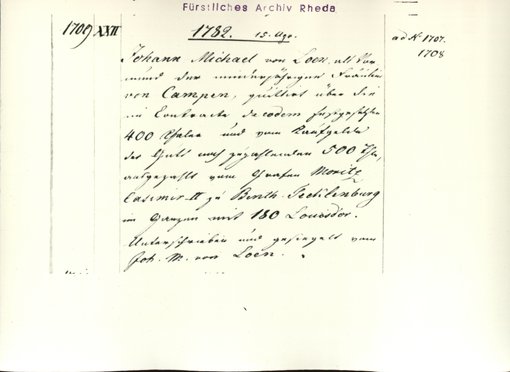 Fürstliches Archiv Rheda
1709 XXII 1782. 15. Agr. ad № 1707.
1708
Johann Michael von Loen, alt Vor
mund der minderjährigen Fräulein
von Campen, quittirt über die
im Contracte de eodem festgesetzten
400 Thaler und vom Kaufgelde
des Guts noch zu zahlenden 500 Thr,
ausgezahlt vom Grafen Moritz
Casimir II zu Benth. Tecklenburg
im Ganzen mit 180 Louisdor.
Unterschrieben und gesiegelt vom
Joh. M. von Loen.